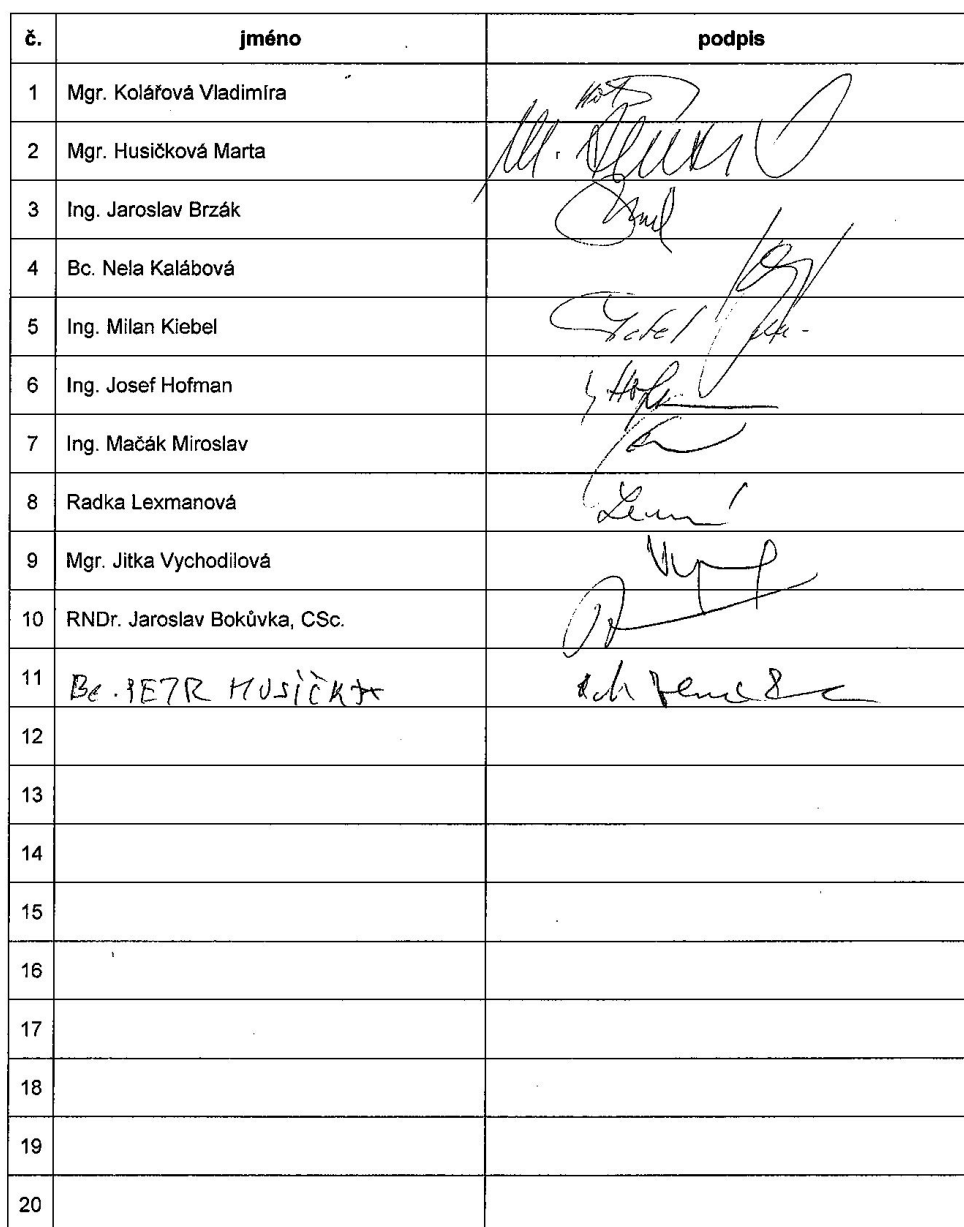 č. jméno podpis
1 Mgr. Kolářová Vladimíra
2 Mgr. Husičková Marta
3 Ing. Jaroslav Brzák
4 Bc. Nela Kalábová
5 Ing. Milan Kiebel
6 Ing. Josef Hofman
7 Ing. Mačák Miroslav
8 Radka Lexmanová
9 Mgr. Jitka Vychodilová
10 RNDr. Jaroslav Bokůvka, CSc.
11 Bc. PETR HUSIČKA
12
13
14
15
16
17
18
19
20